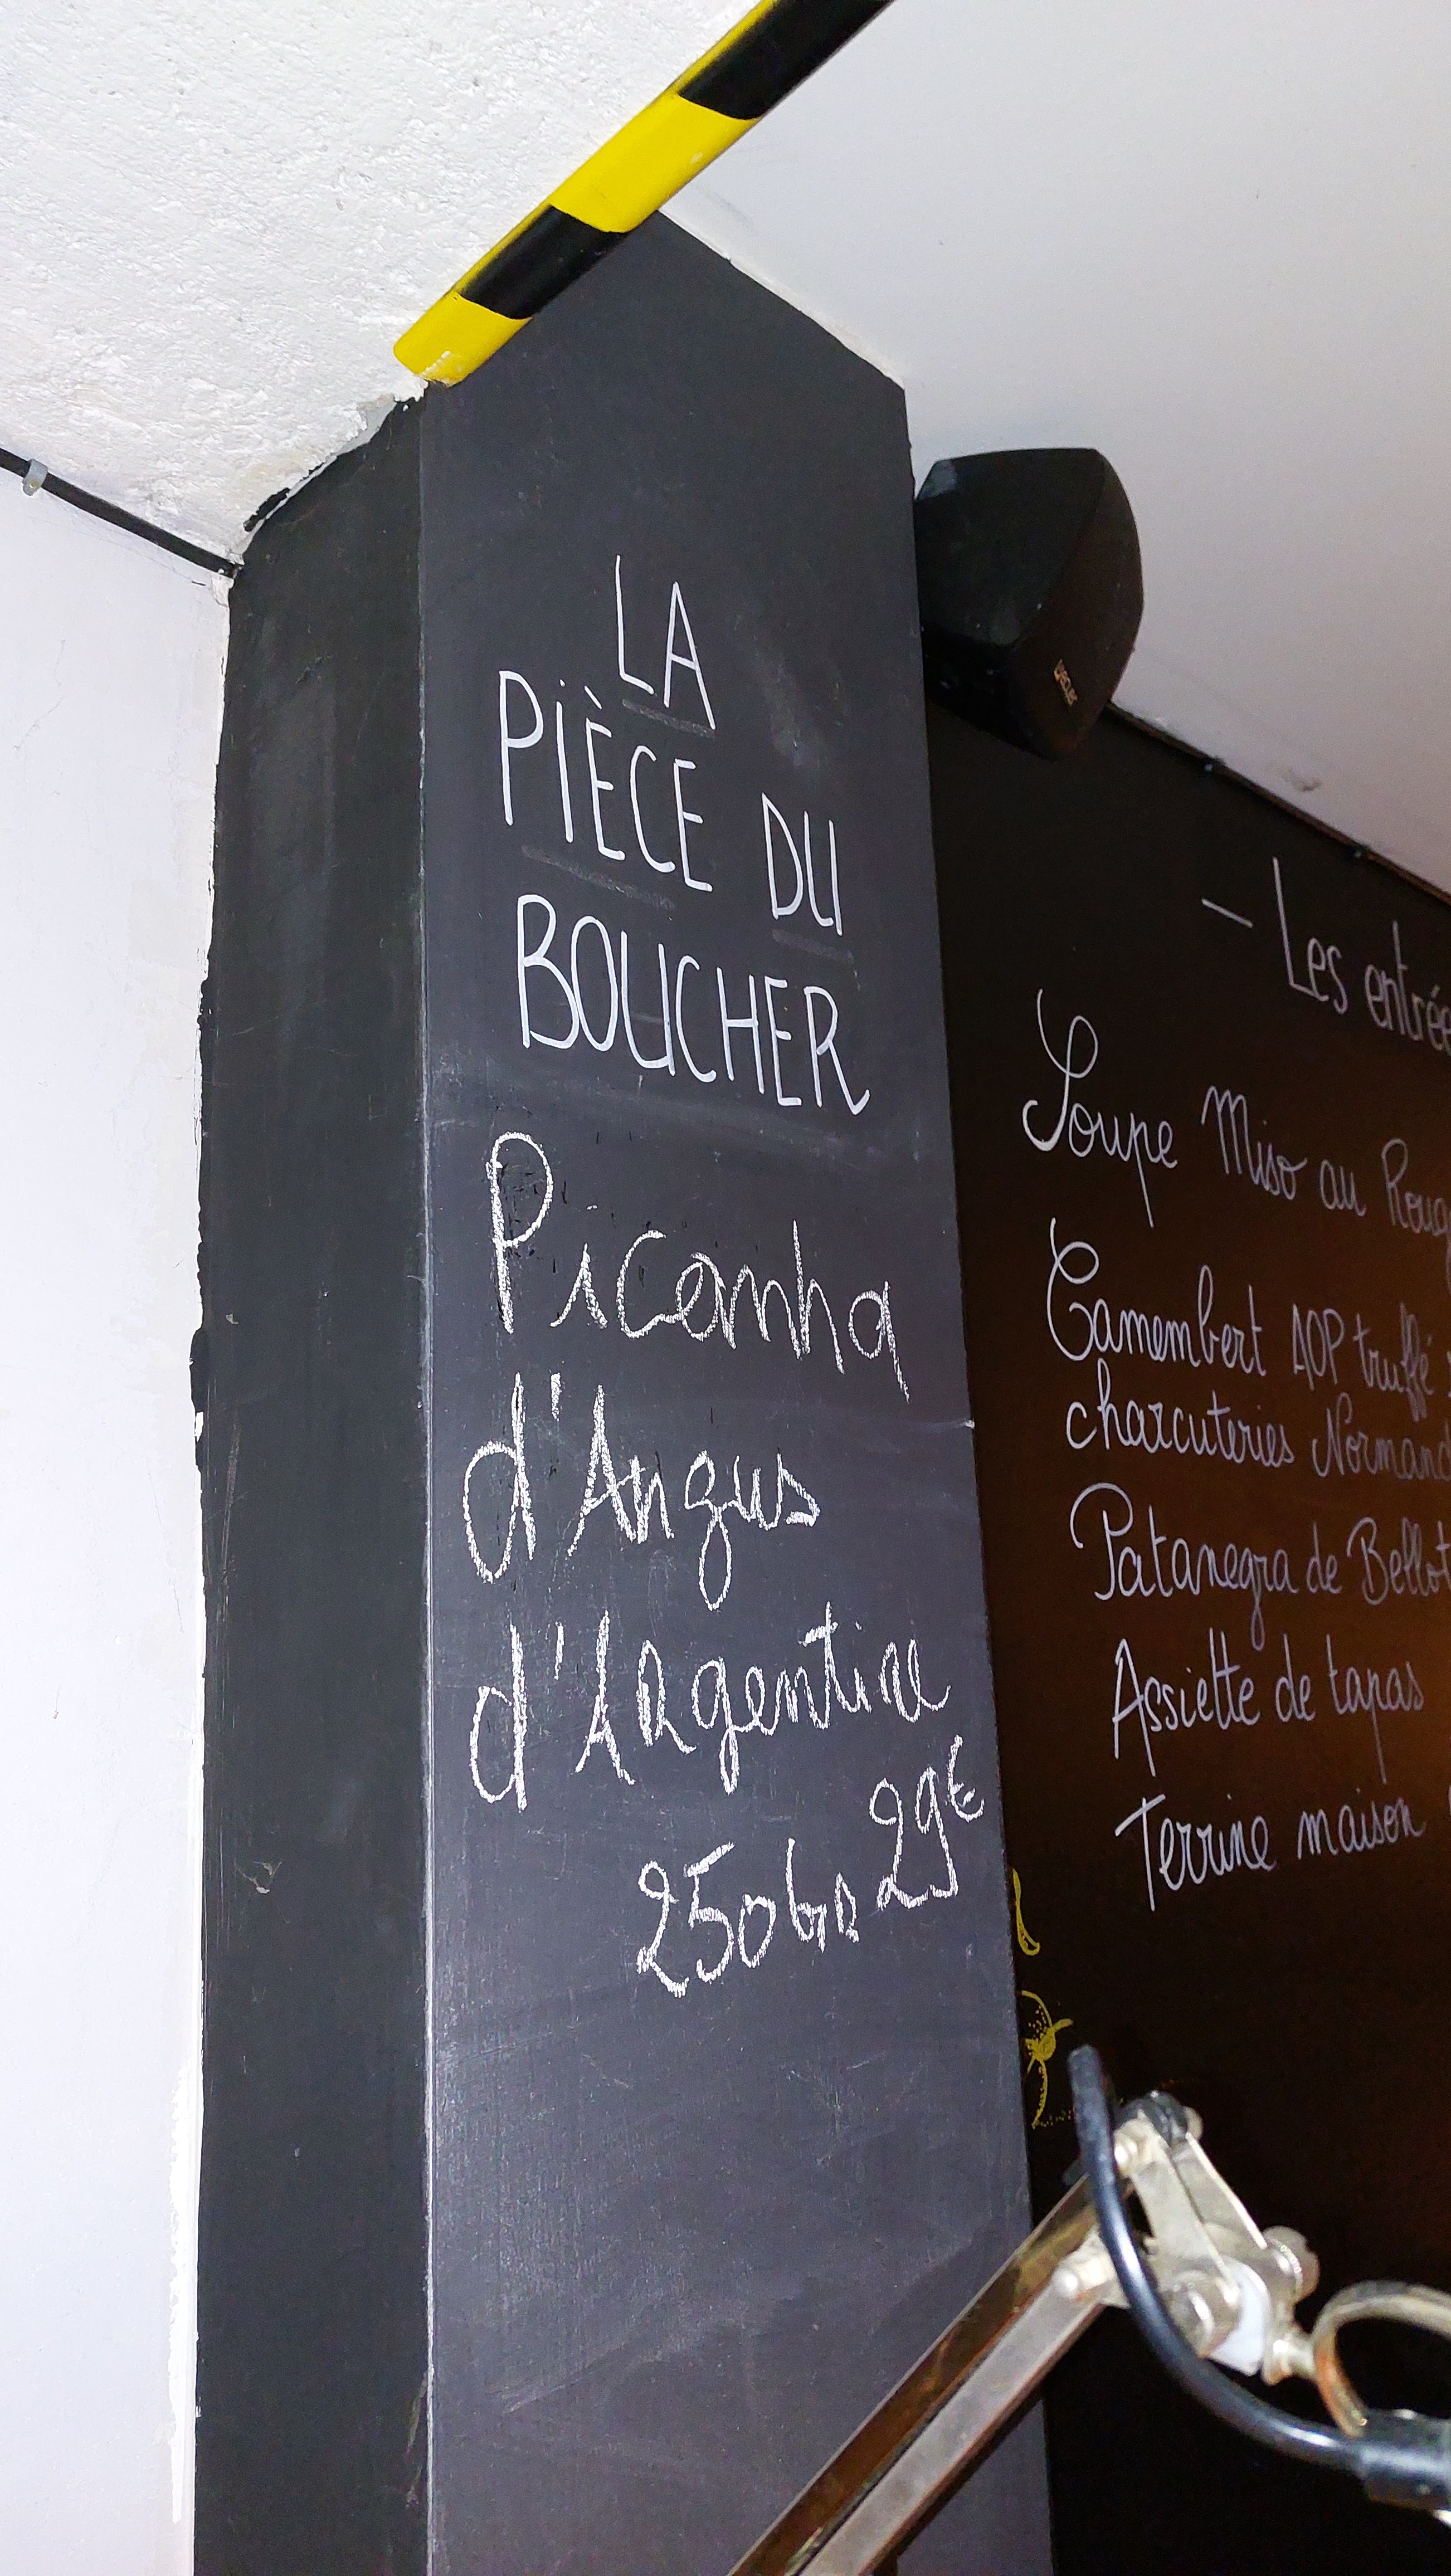 LA
PIÈCE DU
BOUCHER
Picanha
d'Angus
d'ARgentine
250GR 29€
– Les entrée
Soupe Miso au Roug
Camembert AOP truffé
charcuteries Normand
Patanegra de Bellot
Assiette de tapas
Terrine maison